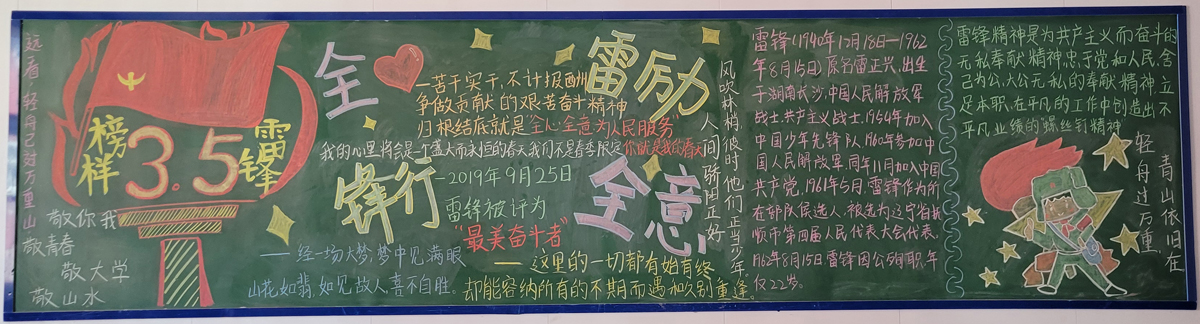 远看轻舟已过万重山
榜样
3.5
雷锋
敬你我
敬青春
敬大学
敬山水
全心全意
雷励锋行
一苦干实干,不计报酬
争做贡献的艰苦奋斗精神
归根结底就是“全心全意为人民服务”
我的心里将会是一个盛大而永恒的春天我们不是春季限定你就是我的春天
-2019年9月25日
雷锋被评为
“最美奋斗者”
——经一场大梦,梦中见满眼
山花如翡,如见故人,喜不自胜。
——这里的一切都有始有终
却能容纳所有的不期而遇和久别重逢。
风吹林梢,彼时他们正当少年。
人间骄阳正好
雷锋(1940年12月18日—1962
年8月15日)原名雷正兴,出生
于湖南长沙,中国人民解放军
战士,共产主义战士,1954年加入
中国少年先锋队,1960年参加中
国人民解放军,同年11月加入中国
共产党。1961年5月,雷锋作为所
在部队候选人,被选为辽宁省抚
顺市第四届人民代表大会代表,
1962年8月15日雷锋因公殉职,年
仅22岁。
雷锋精神是为共产主义而奋斗的
无私奉献精神,忠于党和人民,舍
己为公、大公无私的奉献精神,立
足本职、在平凡的工作中创造出不
平凡业绩的“螺丝钉精神”
轻舟过万重
青山依旧在